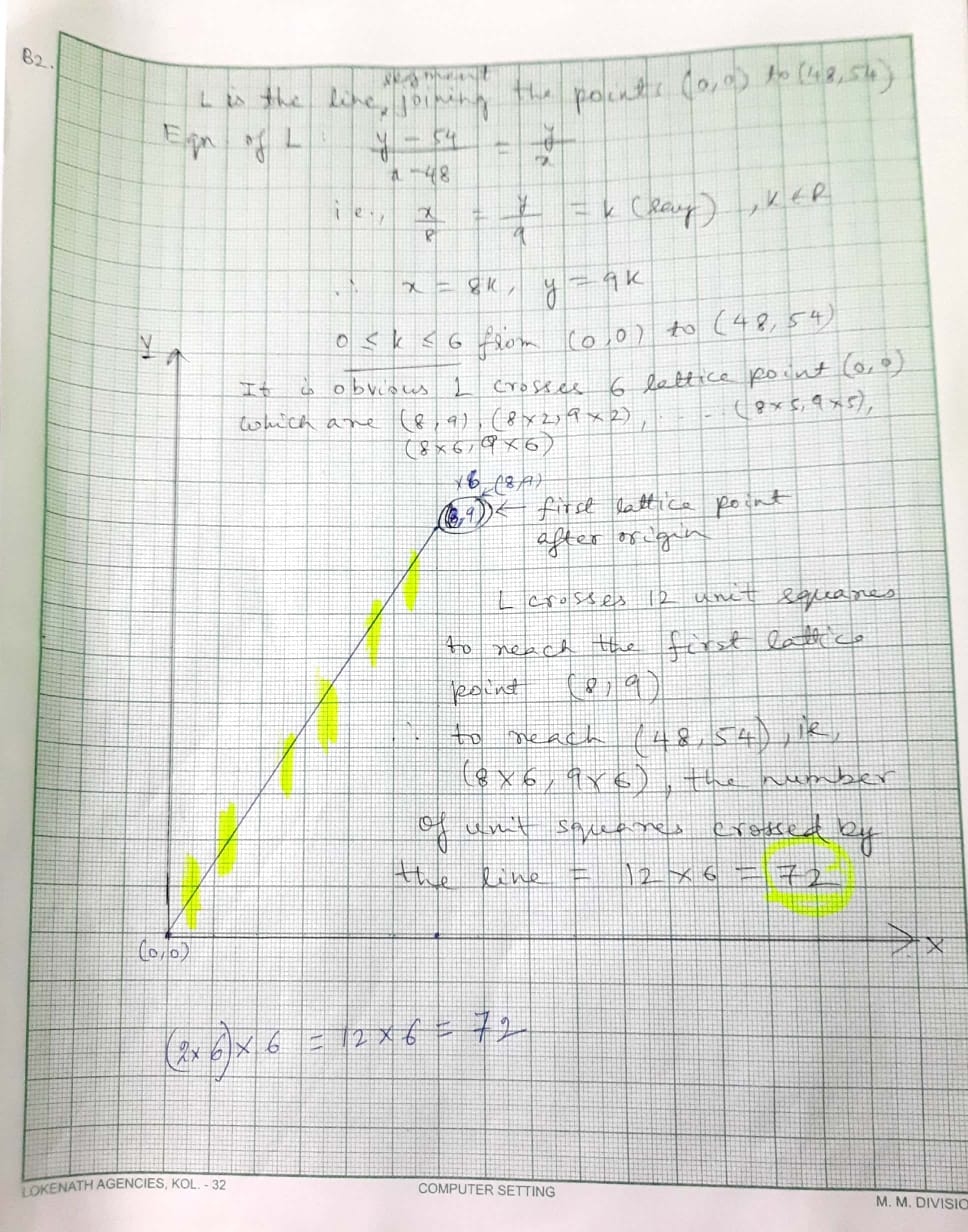 B2.
segment
L is the line, joining the points (0,0) to (48,54)
Eqn of L : y - 54 / x - 48 = y / x
i.e., x/8 = y/9 = k (say), k ∈ R
∴ x = 8k, y = 9k
0 ≤ k ≤ 6 from (0,0) to (48,54)
Y
It is obvious L crosses 6 lattice point (0,0)
which are (8,9), (8×2, 9×2), . . - (8×5, 9×5),
(8×6, 9×6)
×6 (8,9)
(8,9) ← first lattice point
after origin
L crosses 12 unit squares
to reach the first lattice
point (8,9)
∴ to reach (48,54), ie,
(8×6, 9×6), the number
of unit squares crossed by
the line = 12×6 = 72
X
(0,0)
(2×6)×6 = 12×6 = 72
LOKENATH AGENCIES, KOL. - 32
COMPUTER SETTING
M. M. DIVISIO